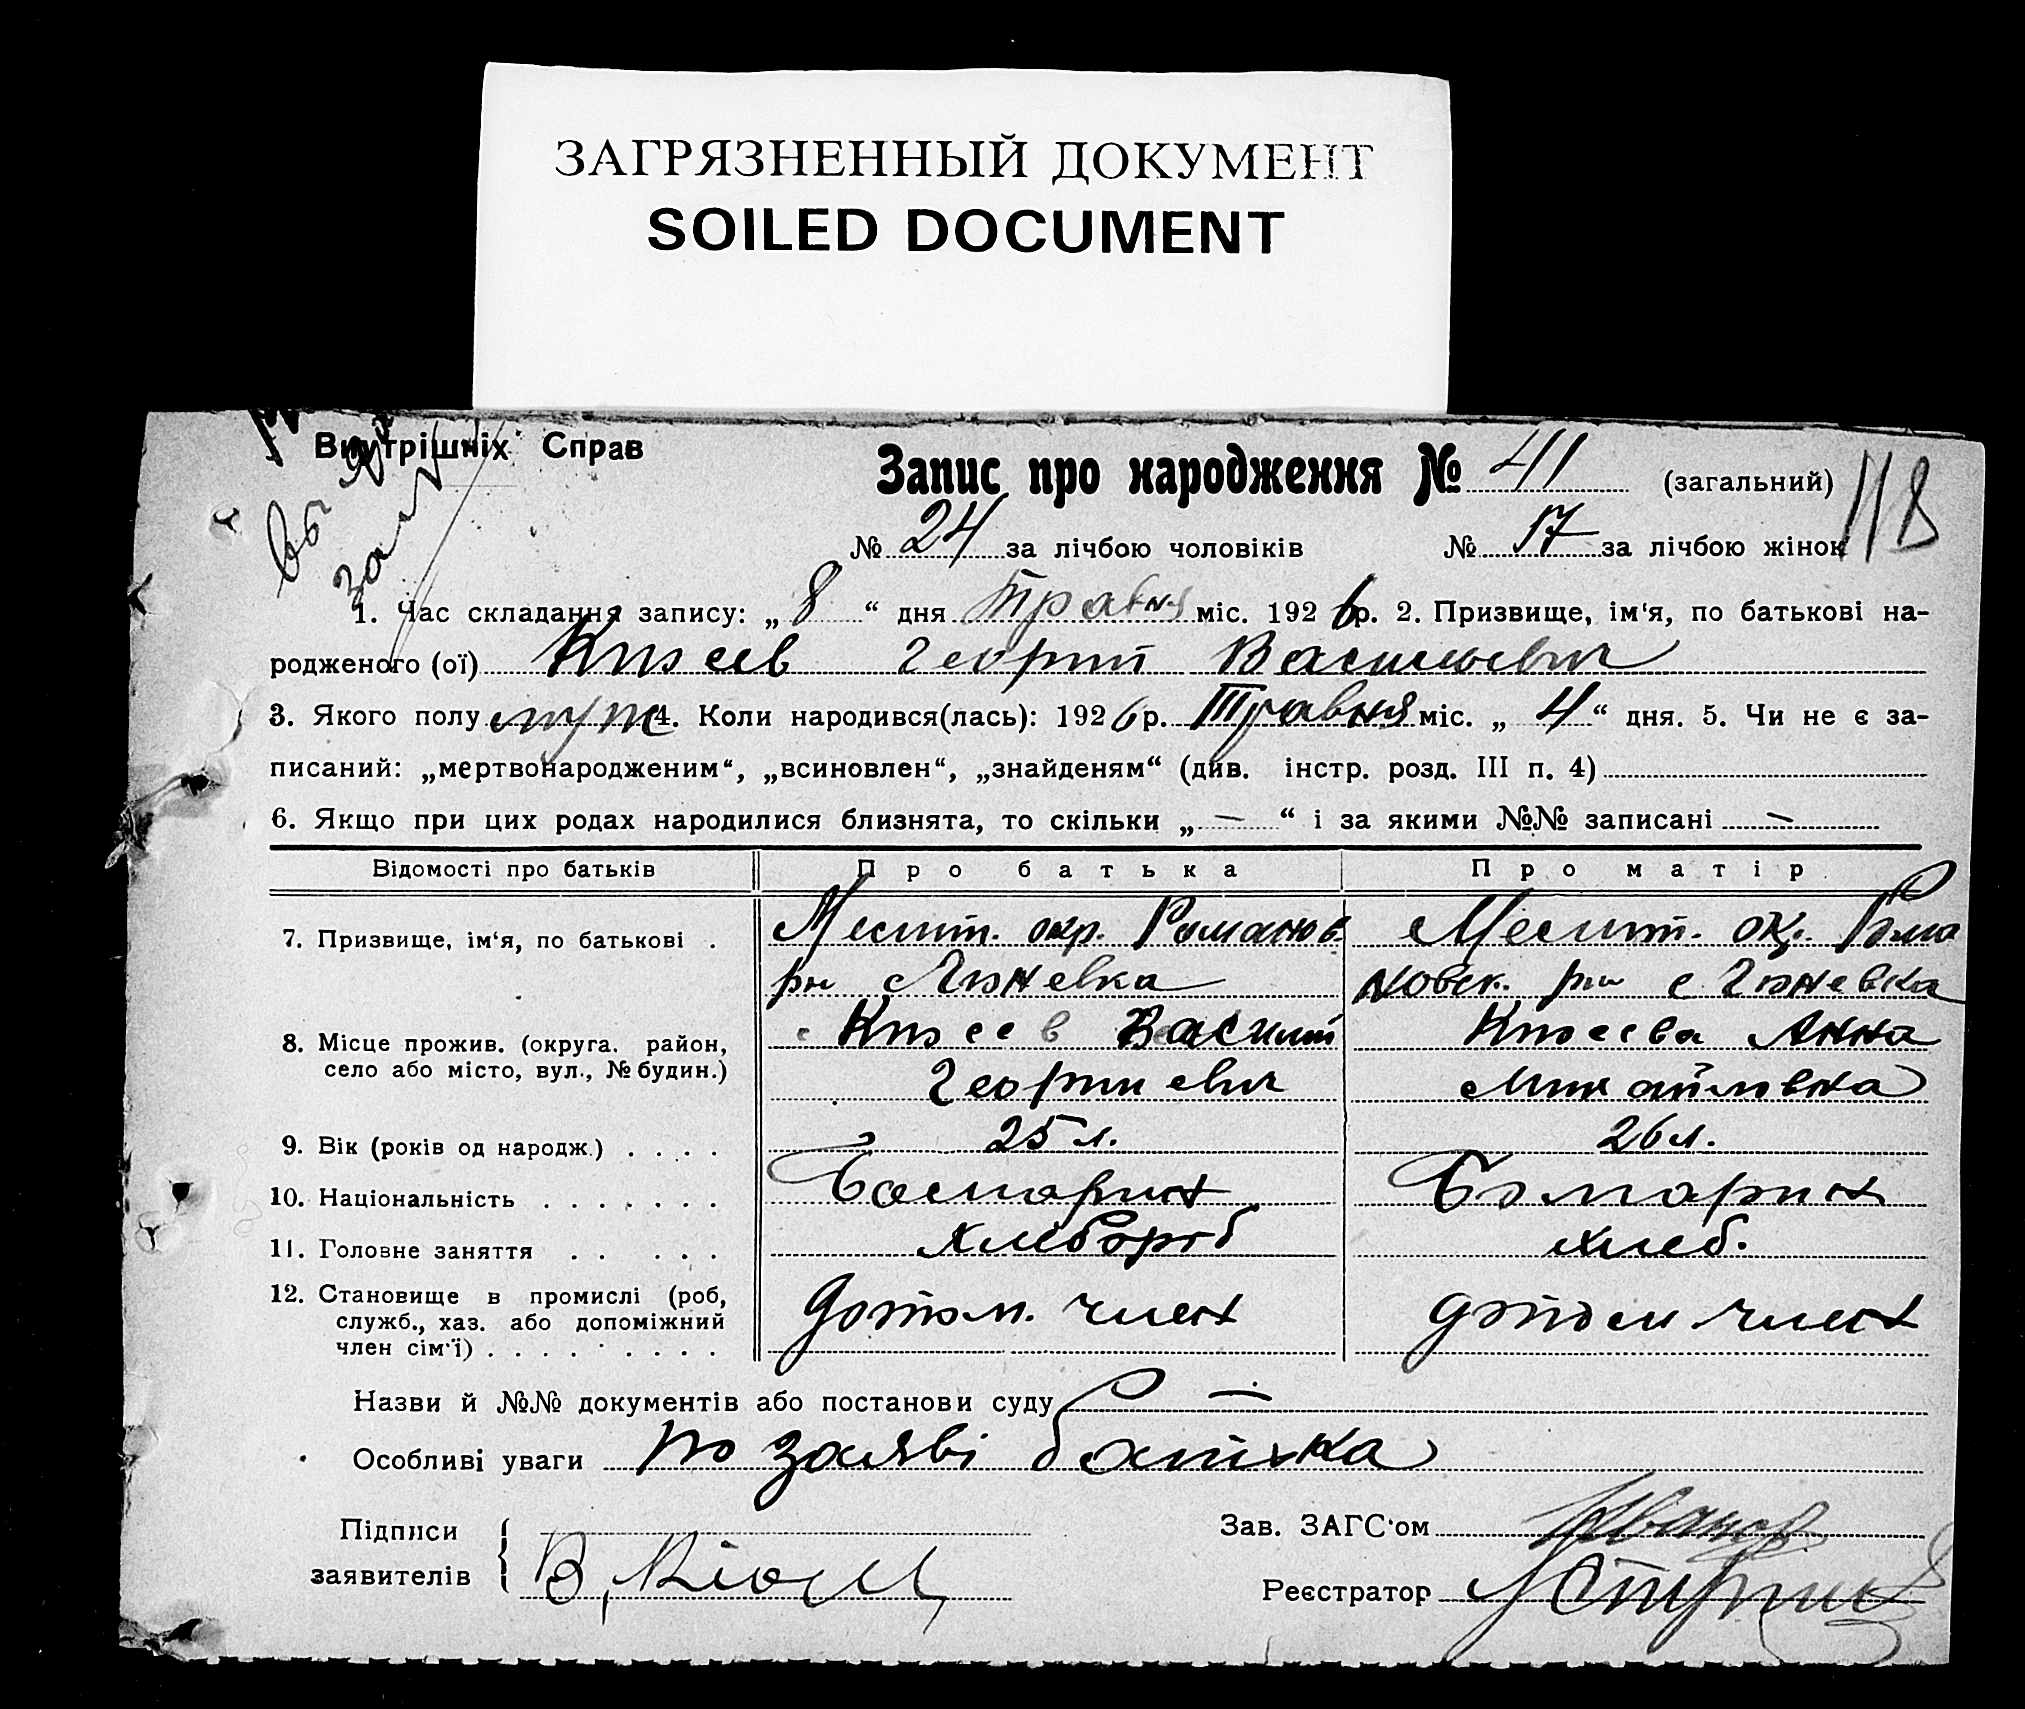 ЗАГРЯЗНЕННЫЙ ДОКУМЕНТ
SOILED DOCUMENT
Внутрішніх Справ
Запис про народження № 41 (загальний) 118
№ 24 за лічбою чоловіків № 17 за лічбою жінок
1. Час складання запису: „ 8 “ дня Травня міс. 1926 р. 2. Призвище, ім'я, по батькові на-
родженого (ої) Георгий Васильевич
3. Якого полу муж 4. Коли народився(лась): 1926 р. Травня міс. „ 4 “ дня. 5. Чи не є за-
писаний: „мертвонародженим“, „всиновлен“, „знайденям“ (див. інстр. розд. III п. 4)
6. Якщо при цих родах народилися близнята, то скільки „ — “ і за якими №№ записані —
Відомості про батьків Про батька Про матір
7. Призвище, ім'я, по батькові . Мелит. окр. Романов. Мелит. ок. Рома
рн новск. рн с
8. Місце прожив. (округа. район, Василий Анна
село або місто, вул., № будин.) Георгиевич Михайловна
9. Вік (років од народж.) . . . . 25 л. 26 л.
10. Національність . . . . . . . Болгарин
11. Головне заняття . . . . . Хлебороб хлеб.
12. Становище в промислі (роб, член член
служб., хаз. або допоміжний
член сім'ї) . . . . . . . . .
Назви й №№ документів або постанови суду —
Особливі уваги по заяві батька
Підписи Зав. ЗАГС'ом Иванов
заявителів Реєстратор